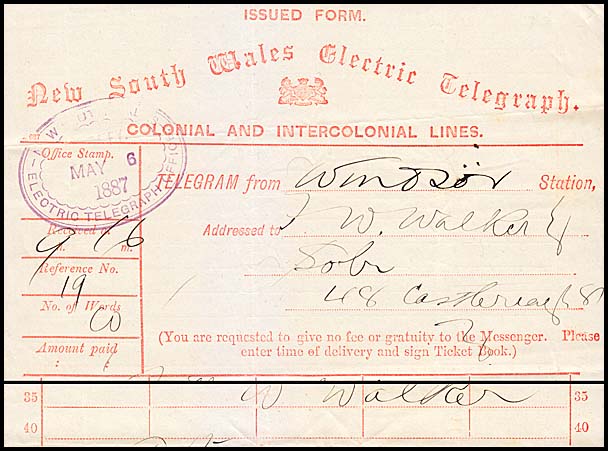 ISSUED FORM.
New South Wales Electric Telegraph.
COLONIAL AND INTERCOLONIAL LINES.
Office Stamp.
MAY 6
1887
ELECTRIC TELEGRAPH OFFICE
TELEGRAM from Windsor Station,
Addressed to W. Walker
Received at
m.
Reference No.
19
Castlereagh St
No. of Words
Amount paid
: :
(You are requested to give no fee or gratuity to the Messenger. Please
enter time of delivery and sign Ticket Book.)
35 W Walker 35
40 40